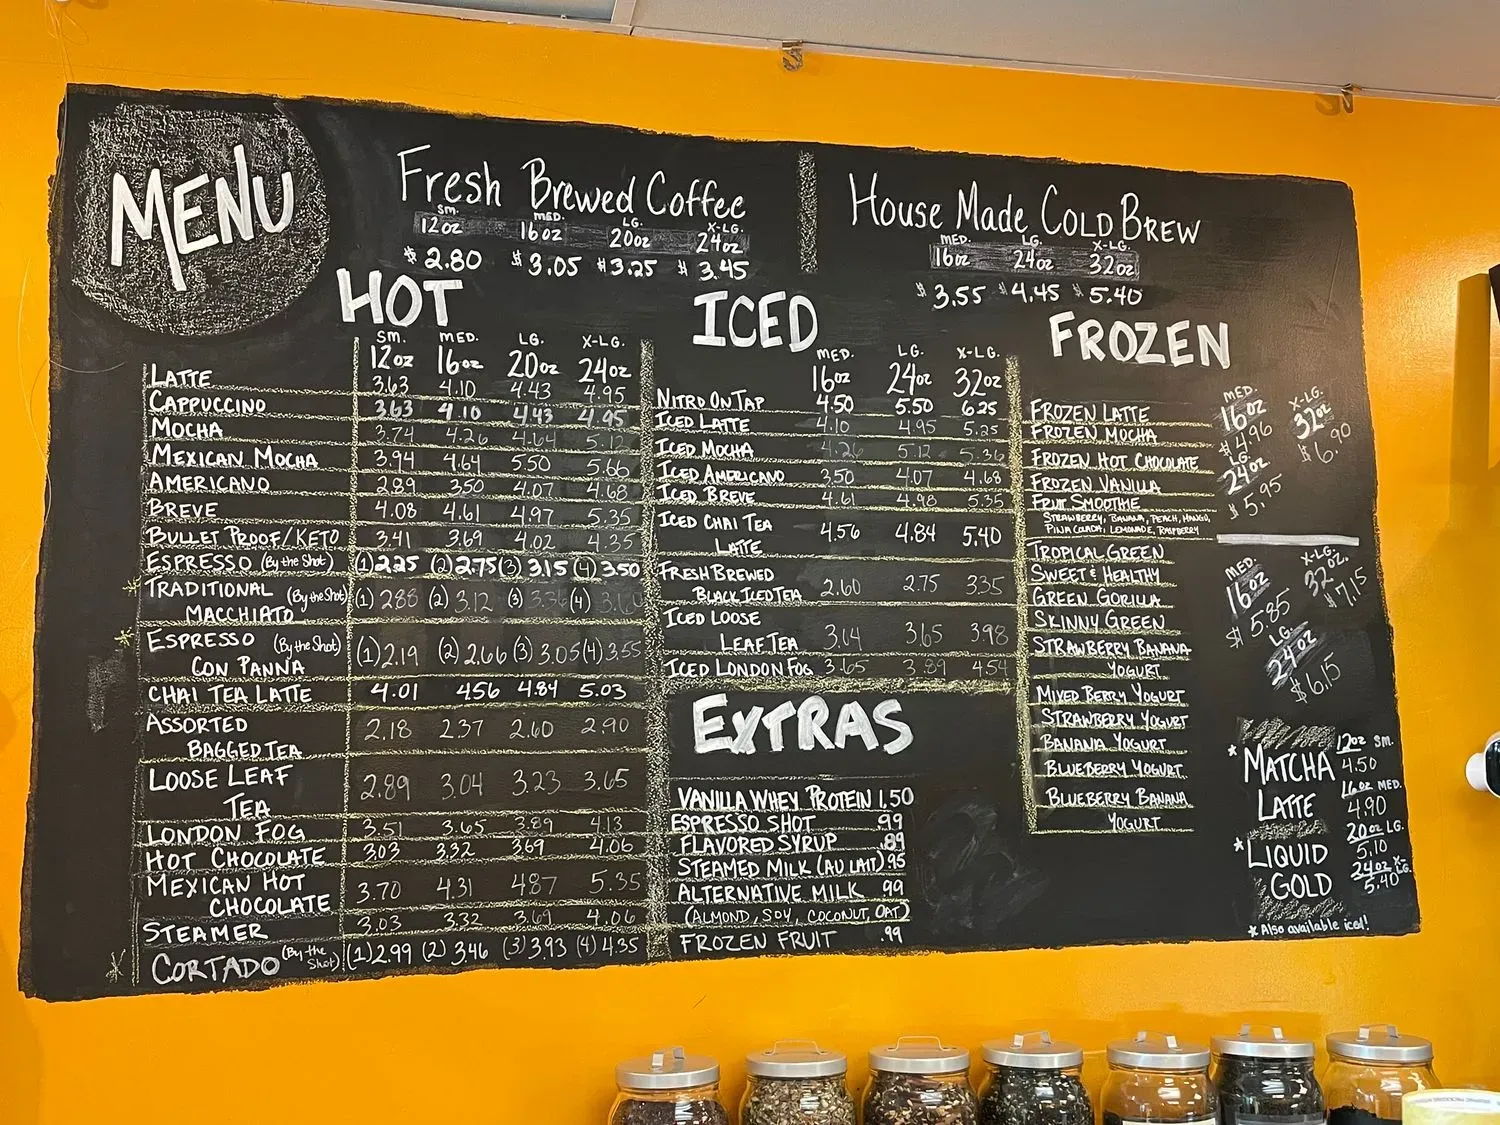 MENU
Fresh Brewed Coffee
SM. MED. LG. X-LG.
12oz 16oz 20oz 24oz
$2.80 $3.05 $3.25 $3.45
House Made COLD BREW
MED. LG. X-LG.
16oz 24oz 32oz
$3.55 $4.45 $5.40
HOT
SM. MED. LG. X-LG.
12oz 16oz 20oz 24oz
LATTE 3.63 4.10 4.43 4.95
CAPPUCCINO 3.63 4.10 4.43 4.95
MOCHA 3.74 4.26 4.64 5.12
MEXICAN MOCHA 3.94 4.64 5.50 5.66
AMERICANO 2.89 3.50 4.07 4.68
BREVE 4.08 4.61 4.97 5.35
BULLET PROOF/KETO 3.41 3.69 4.02 4.35
ESPRESSO (By the Shot) (1) 2.25 (2) 2.75 (3) 3.15 (4) 3.50
TRADITIONAL (By the Shot) (1) 2.88 (2) 3.12 (3) (4)
MACCHIATO
ESPRESSO (By the Shot) (1) 2.19 (2) 2.66 (3) 3.05 (4) 3.55
CON PANNA
CHAI TEA LATTE 4.01 4.56 4.84 5.03
ASSORTED 2.18 2.37 2.60 2.90
BAGGED TEA
LOOSE LEAF 2.89 3.04 3.23 3.65
TEA
LONDON FOG 3.51 3.65 3.89 4.13
HOT CHOCOLATE 3.03 3.32 3.69 4.06
MEXICAN HOT 3.70 4.31 4.87 5.35
CHOCOLATE
STEAMER 3.03 3.32 3.69 4.06
CORTADO (By the Shot) (1) 2.99 (2) 3.46 (3) 3.93 (4) 4.35
ICED
MED. LG. X-LG.
16oz 24oz 32oz
NITRO ON TAP 4.50 5.50 6.25
ICED LATTE 4.10 4.95 5.25
ICED MOCHA 4.26 5.12 5.36
ICED AMERICANO 3.50 4.07 4.68
ICED BREVE 4.61 4.98 5.35
ICED CHAI TEA 4.56 4.84 5.40
LATTE
FRESH BREWED 2.60 2.75 3.35
BLACK ICED TEA
ICED LOOSE
LEAF TEA 3.04 3.65 3.98
ICED LONDON FOG 3.65 3.89 4.54
EXTRAS
VANILLA WHEY PROTEIN 1.50
ESPRESSO SHOT .99
FLAVORED SYRUP .89
STEAMED MILK (AU LAIT) .95
ALTERNATIVE MILK .99
(ALMOND, SOY, COCONUT, OAT)
FROZEN FRUIT .99
FROZEN
FROZEN LATTE
FROZEN MOCHA
FROZEN HOT CHOCOLATE
FROZEN VANILLA
FRUIT SMOOTHIE
STRAWBERRY, BANANA, PEACH, MANGO,
PINA COLADA, LEMONADE, RASPBERRY
MED. X-LG.
16oz 32oz
$4.96 $6.90
LG.
24oz.
$5.95
TROPICAL GREEN
SWEET & HEALTHY
GREEN GORILLA
SKINNY GREEN
STRAWBERRY BANANA
YOGURT
MIXED BERRY YOGURT
STRAWBERRY YOGURT
BANANA YOGURT
BLUEBERRY YOGURT
BLUEBERRY BANANA
YOGURT
MED. X-LG.
16oz 32oz.
$5.85 $7.15
LG.
24oz
$6.15
* MATCHA
LATTE
* LIQUID
GOLD
12oz SM.
4.50
16oz MED.
4.90
20oz LG.
5.10
24oz X-LG.
5.40
* Also available iced!